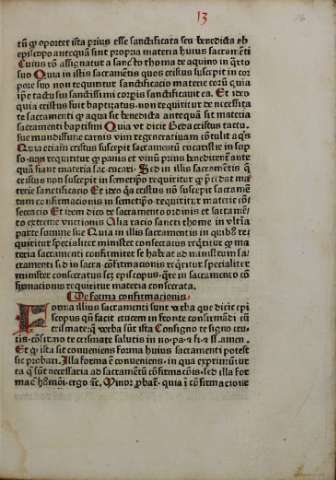 13
tũ ꝙ oportet ista prius esse sanctificata seu benedicta ab
episcopo antequã sint propria materia huius sacramẽti
Cuius rõ assignatur a sancto thoma de aquino in q̃rto
suo Quia in istis sacramẽtis quos cristus suscepit in cor
pore suo non requiritur sanctificatio materie
ipẽ tactu sui sanctissimi corpis sanctificauit ea. Et ideo
quia cristus fuit baptizatus non requiritur de necessita
te sacramenti ꝙ aqua sit benedicta antequã sit materia
sacramenti baptismi Quia vt dicit Beda cristus tactu
sue mundissime carnis vim regeneratiuam cõtulit aq̃s
Quia etiam cristus suscepit sacramentũ eucaristie in sup
requiritur ꝙ panis et vinũ prius
quã fiant materia Sed in illis sacramẽtis q̃
cristus non suscepit in semetipo requiritur ꝙ
terie sanctificatio Et ideo q̃a cristus nõ suscepit sacramẽ
tum confirmacionis in semetipo requiritur materie
secratio Et idem dico de sacramento ordinis et sacramẽ
to extreme vnctionis Alia racio sancti thome in vltĩa
parte summe sue Quia in illis sacramentis in quibus re
quiritur specialiter minister consecratus reqritur ꝙ ma
teria sacramenti confirmetur se habeat ad ministrum sa
cramenti sed in sacra cõfirmacionis reqritur specialiter
minister consecratus sc̃ episcopus, q̃re in sacramento cõ
firmacionis requiritur materia consecrata.
De forma confirmacionis
Forma illius sacramenti sunt verba que dicit epi
scopus quã facit crucem in fronte confirmãdi cũ
crismate: q̃ verba sũt ista Consigno te signo cru
cis cõfirmo te crismate salutis in no. pa. & fi. & ss. amen.
Et ꝙ ista sit conueniens forma huius sacramenti potest
sic probari. Illa forma ẽ conueniens in qua exprimũtur
ea q̃ sũt necessaria ad sacramẽtũ cõfirmacõis, sed illa for
ma ẽ hmõi ergo &c. Minor probat. quia ĩ cõfirmacione